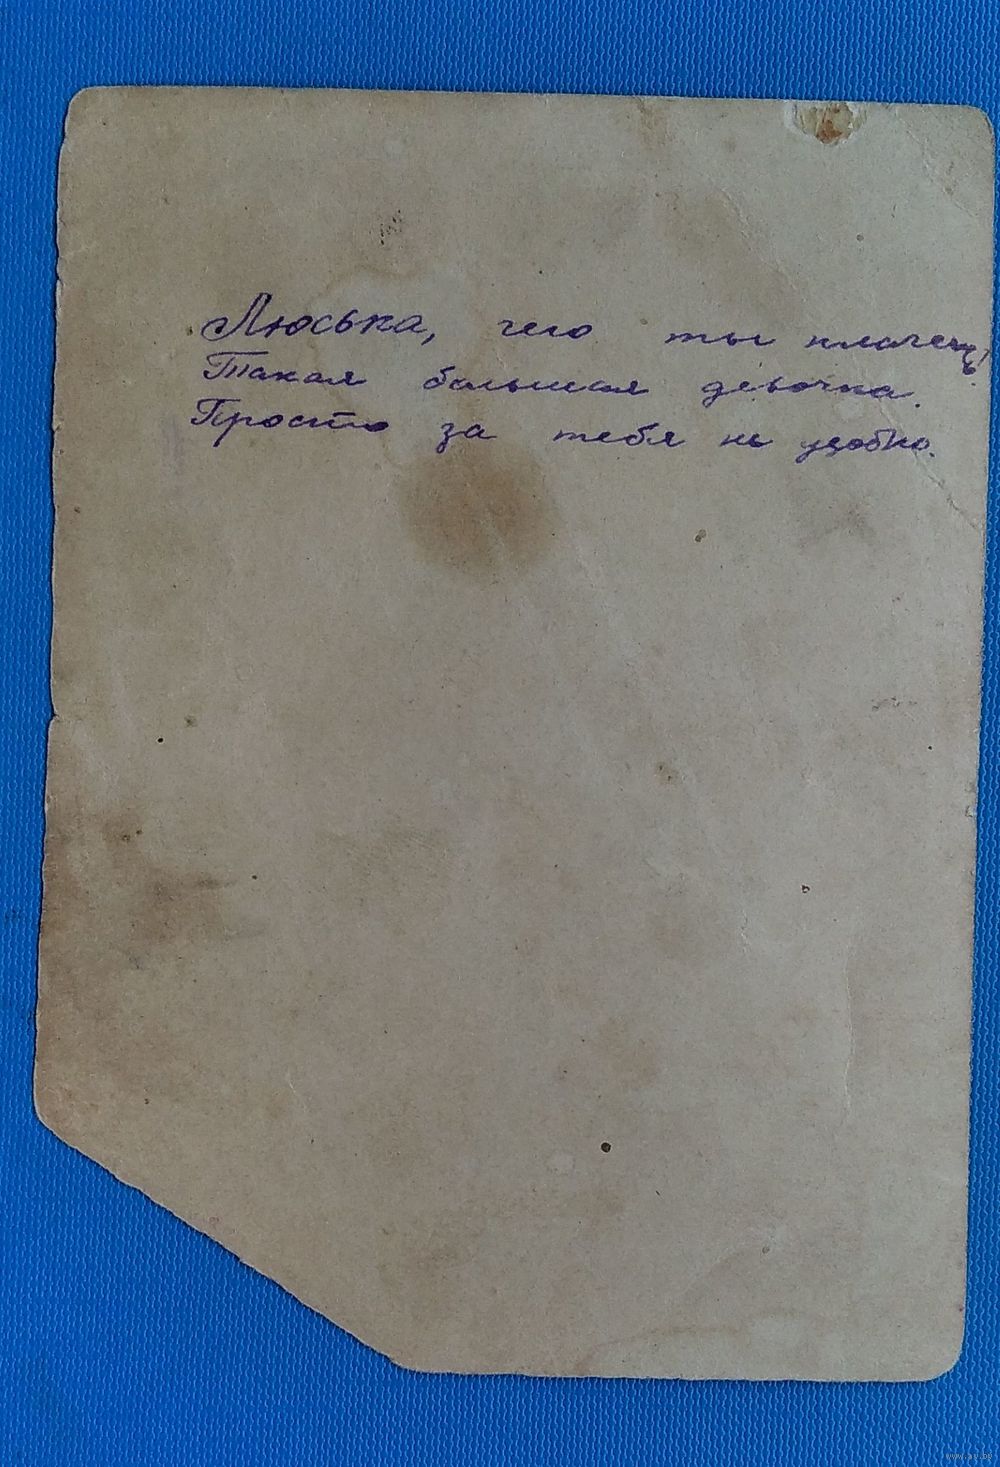 Люська, чего ты плачешь!
Такая большая девочка.
Просто за тебя не удобно.
www.ay.by